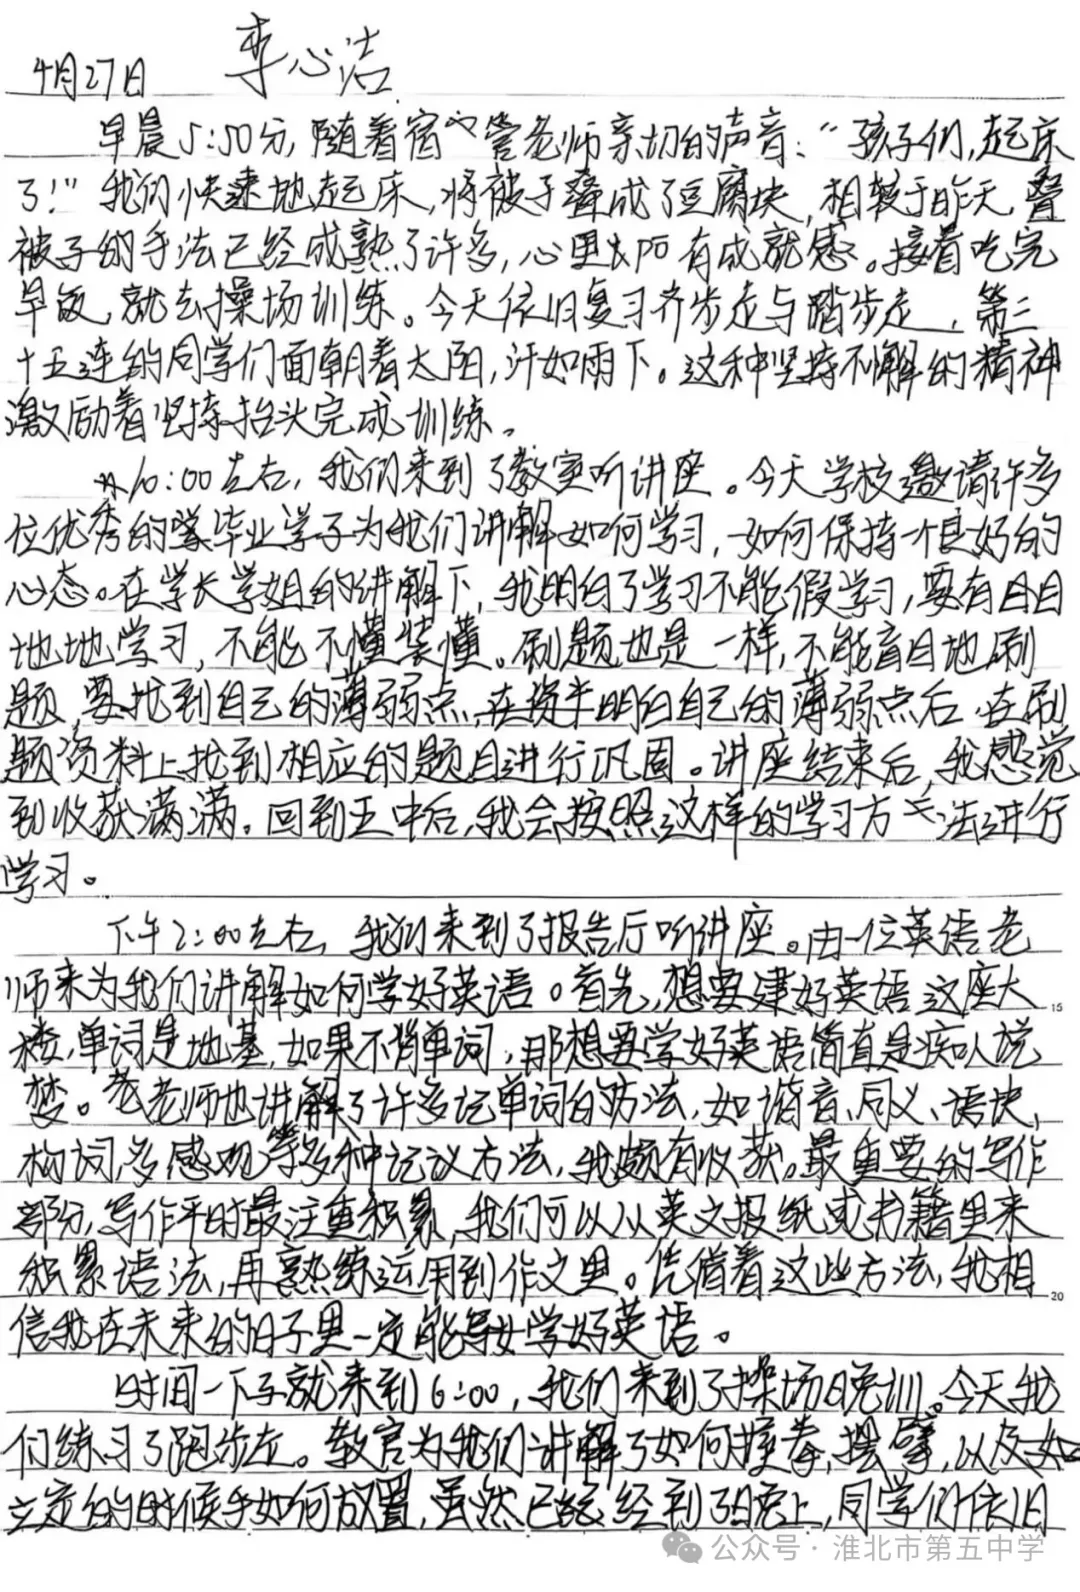 4月27日 李心洁
早晨5:50分,随着宿管老师亲切的声音:“孩子们,起床
了!”我们快速地起床,将被子叠成了豆腐块,相较于昨天,叠
被子的手法已经成熟了许多,心里大有成就感。接着吃完
早饭,就去操场训练。今天依旧复习齐步走与踏步走,第三
十五连的同学们面朝着太阳,汁如雨下。这种坚持不懈的精神
激励着坚持抬头完成训练。
10:00左右,我们来到了教室听讲座。今天学校邀请许多
位优秀的毕业学子为我们讲解如何学习,如何保持个良好的
心态。在学长学姐的讲解下,我明白了学习不能假学习,要有目目
地地学习,不能不懂装懂。刷题也是一样,不能盲目地刷
题,要找到自己的薄弱点,在明白自己的薄弱点后,在刷
题资料上找到相应的题目进行巩固。讲座结束后,我感觉
到收获满满。回到五中后,我会按照这样的学习方法进行
学习。
下午2:00左右,我们来到了报告厅听讲座。由一位英语老
师来为我们讲解如何学好英语。首先,想要建好英语这座大
楼,单词是地基,如果不背单词,那想要学好英语简直是痴人说
梦。老师也讲解了许多记单词的方法,如谐音、同义、语块,
构词,多感观等多种记议方法,我颇有收获。最重要的写作
部分,写作平时最注重积累,我们可以从英文报纸或书籍里来
积累语法,再熟练运用到作文里。凭借着这些方法,我相
信我在未来的日子里一定能学好英语。
时间一下子就来到6:00,我们来到了操场晚训。今天我
们练习了跑步走。教官为我们讲解了如何握拳,摆臂,以及如
立定的时候手如何放置,虽然已经到了晚上,同学们依旧
15
20
公众号·淮北市第五中学